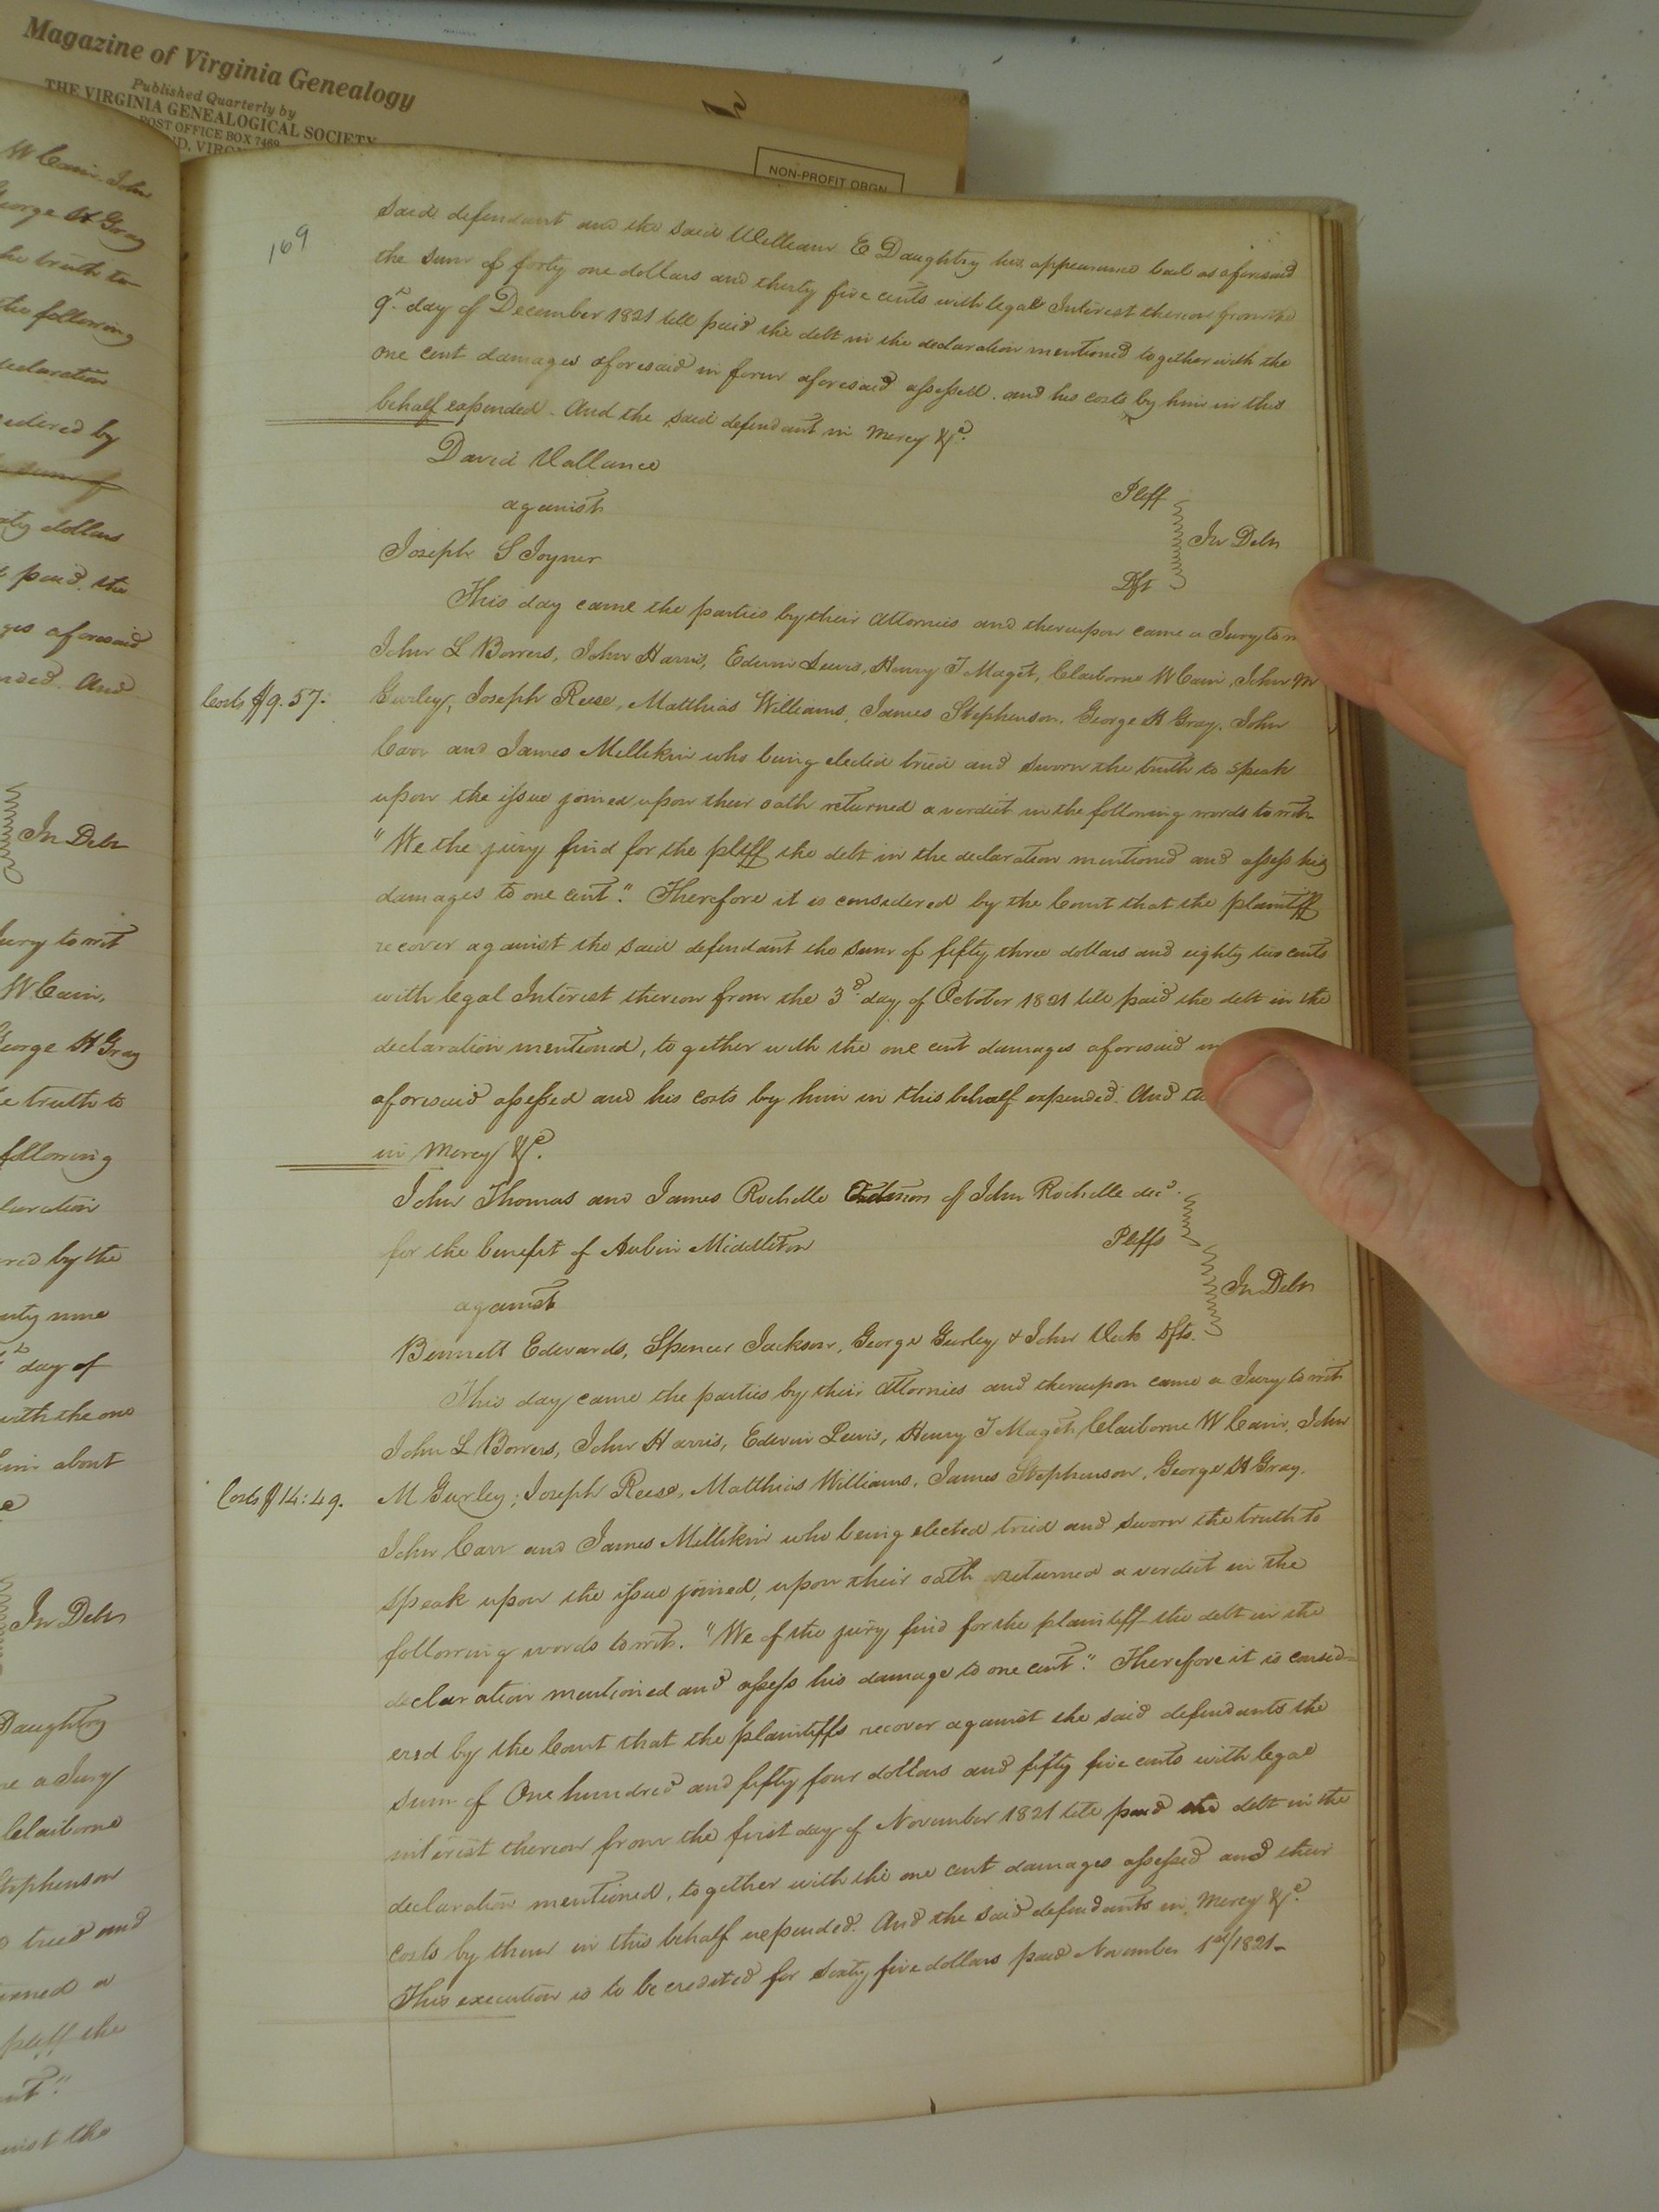 Magazine of Virginia Genealogy
Published Quarterly by
THE VIRGINIA GENEALOGICAL SOCIETY
POST OFFICE BOX 7469
NON-PROFIT ORGN
W Cain John
George H Gray
the truth to
the following
declaration
by
dollars
paid the
aforesaid
And
In Debt
Jury to wit
W Cain,
George H Gray
truth to
following
by the
nine
day of
with the one
about
In Debt
Daughtry
a Jury
Claiborne
Stephenson
tried and
a
pltff the
the
169
said defendant and the said William E Daughtry his appearance bail as aforesaid
the sum of forty one dollars and thirty five cents with legal Interest thereon from the
9th day of December 1821 till paid the debt in the declaration mentioned together with the
one cent damages aforesaid in form aforesaid assessed. and his costs by him in this
behalf expended. And the said defendant in Mercy &c.
David Vallance
Pltff
against
In Debt
Joseph S Joyner
Dft
This day came the parties by their attornies and thereupon came a Jury to
John L Bowers, John Harris, Edwin Lewis, Henry J Maget, Claiborne W Cain, John M
Costs $9.57.
Gurley, Joseph Reese, Matthias Williams, James Stephenson, George H Gray, John
Carr and James Millikin who being elected tried and sworn the truth to speak
upon the issue joined upon their oath returned a verdict in the following words to wit.
"We the jury find for the pltff the debt in the declaration mentioned and assess his
damages to one cent." Therefore it is considered by the Court that the plaintiff
recover against the said defendant the sum of fifty three dollars and eighty two cents
with legal Interest thereon from the 3d day of October 1821 till paid the debt in the
declaration mentioned, together with the one cent damages aforesaid in
aforesaid assessed and his costs by him in this behalf expended. And
in Mercy &c.
John Thomas and James Rochelle of John Rochelle decd.
for the benefit of Aubin Middleton
Pltffs
against
In Debt
Bennett Edwards, Spencer Jackson, George Gurley & John Vick Dfts.
This day came the parties by their attornies and thereupon came a Jury to wit
John L Bowers, John Harris, Edwin Lewis, Henry J Maget, Claiborne W Cain, John
Costs $14:49.
M Gurley, Joseph Reese, Matthias Williams, James Stephenson, George H Gray,
John Carr and James Millikin who being elected tried and sworn the truth to
speak upon the issue joined, upon their oath returned a verdict in the
following words to wit. "We of the jury find for the plaintiff the debt in the
declaration mentioned and assess his damage to one cent." Therefore it is consid=
ered by the Court that the plaintiffs recover against the said defendants the
sum of One hundred and fifty four dollars and fifty five cents with legal
interest thereon from the first day of November 1821 till paid the debt in the
declaration mentioned, together with the one cent damages assessed and their
costs by them in this behalf expended. And the said defendants in Mercy &c.
This execution is to be credited for sixty five dollars paid November 1st/1821-